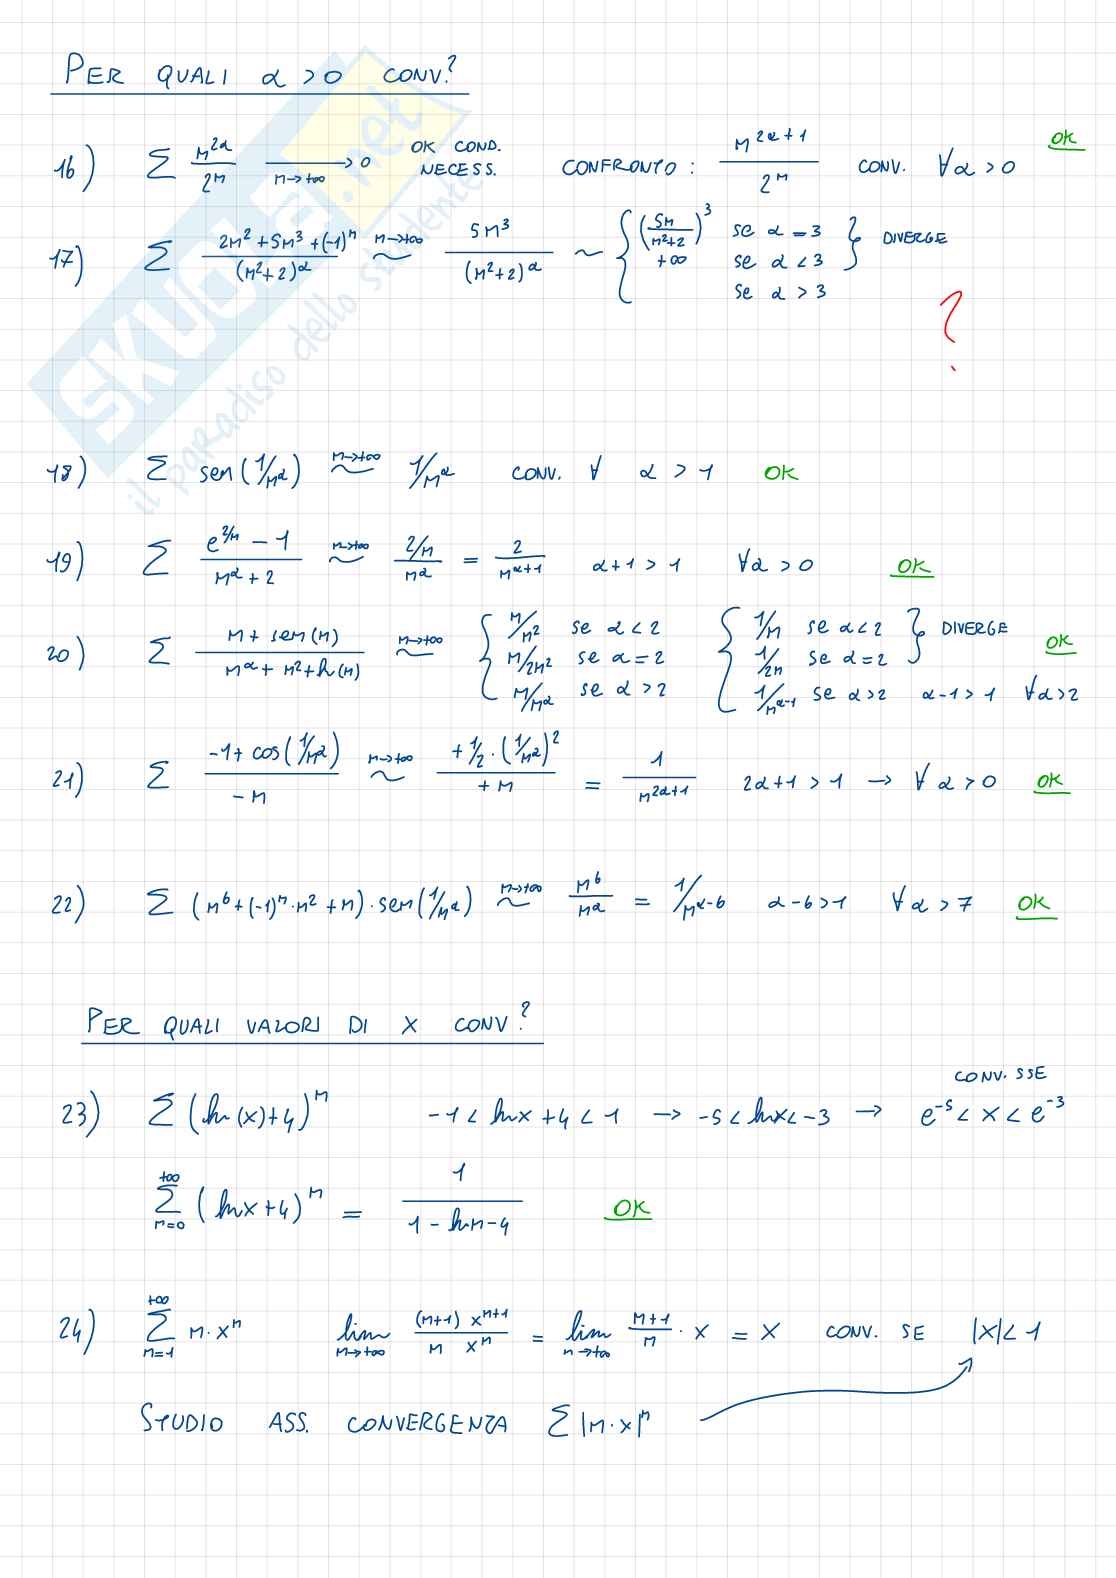 PER QUALI α > 0 CONV.?
16) Σ n^{2α}/2^n ⟶_{n→+∞} 0 OK COND. NECESS. CONFRONTO: n^{2α+1}/2^n CONV. ∀α > 0 OK
17) Σ (2n² + 5n³ + (-1)^n)/(n²+2)^α ~^{n→+∞} 5n³/(n²+2)^α ~ { (5n/(n²+2))³ se α = 3
+∞ se α < 3 } DIVERGE
se α > 3
?
18) Σ sen(1/n^α) ~^{n→+∞} 1/n^α CONV. ∀ α > 1 OK
19) Σ (e^{2/n} - 1)/(n^α + 2) ~^{n→+∞} (2/n)/n^α = 2/n^{α+1} α+1 > 1 ∀α > 0 OK
20) Σ (n + sen(n))/(n^α + n² + ln(n)) ~^{n→+∞} { n/n² se α < 2 { 1/n se α < 2 } DIVERGE OK
n/2n² se α = 2 1/2n se α = 2
n/n^α se α > 2 1/n^{α-1} se α > 2 α-1 > 1 ∀α > 2
21) Σ (-1 + cos(1/n^α))/(-n) ~^{n→+∞} (+1/2 · (1/n^α)²)/(+n) = 1/n^{2α+1} 2α+1 > 1 → ∀ α > 0 OK
22) Σ (n⁶ + (-1)^n · n² + n) · sen(1/n^α) ~^{n→+∞} n⁶/n^α = 1/n^{α-6} α-6 > 1 ∀ α > 7 OK
PER QUALI VALORI DI X CONV?
CONV. SSE
23) Σ (ln(x)+4)^n -1 < ln x + 4 < 1 → -5 < ln x < -3 → e^{-5} < x < e^{-3}
Σ_{n=0}^{+∞} (ln x + 4)^n = 1/(1 - ln n - 4) OK
24) Σ_{n=1}^{+∞} n · x^n lim_{n→+∞} (n+1) x^{n+1}/n x^n = lim_{n→+∞} (n+1)/n · x = x CONV. SE |x| < 1
STUDIO ASS. CONVERGENZA Σ |n · x|^n
SKUOLA.net
il paradiso dello studente